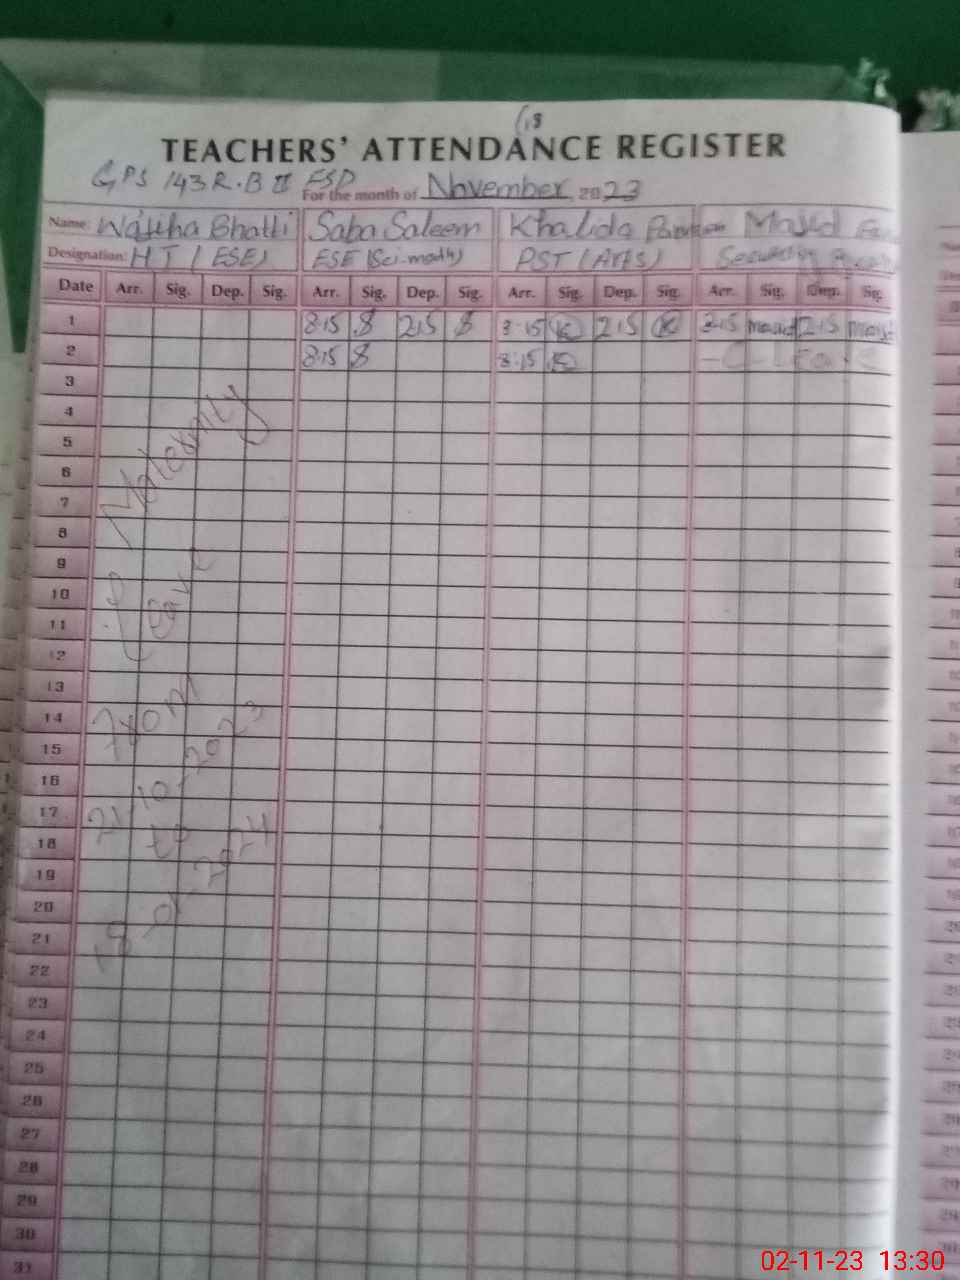 (18
TEACHERS' ATTENDANCE REGISTER
GPS 143 R.B II FSD
For the month of November, 2023
Name: Bhatti Saba Saleem Khalida Majid
Designation: HT (ESE) ESE (Sci-math) PST (Arts)
Date Arr. Sig. Dep. Sig. Arr. Sig. Dep. Sig. Arr. Sig. Dep. Sig. Arr. Sig. Dep. Sig.
1 8:15 S 2:15 S 8:15 K 2:15 K 8:15 majid 2:15 majid
2 8:15 S 8:15 K - C - Leave
3
4
5
6
7
8
9
10
11
12
13
14
15
16
17
18
19
20
21
22
23
24
25
26
27
28
29
30
31
Maternity
Leave
From
21-10-2023
to
18-01-2024
02-11-23 13:30